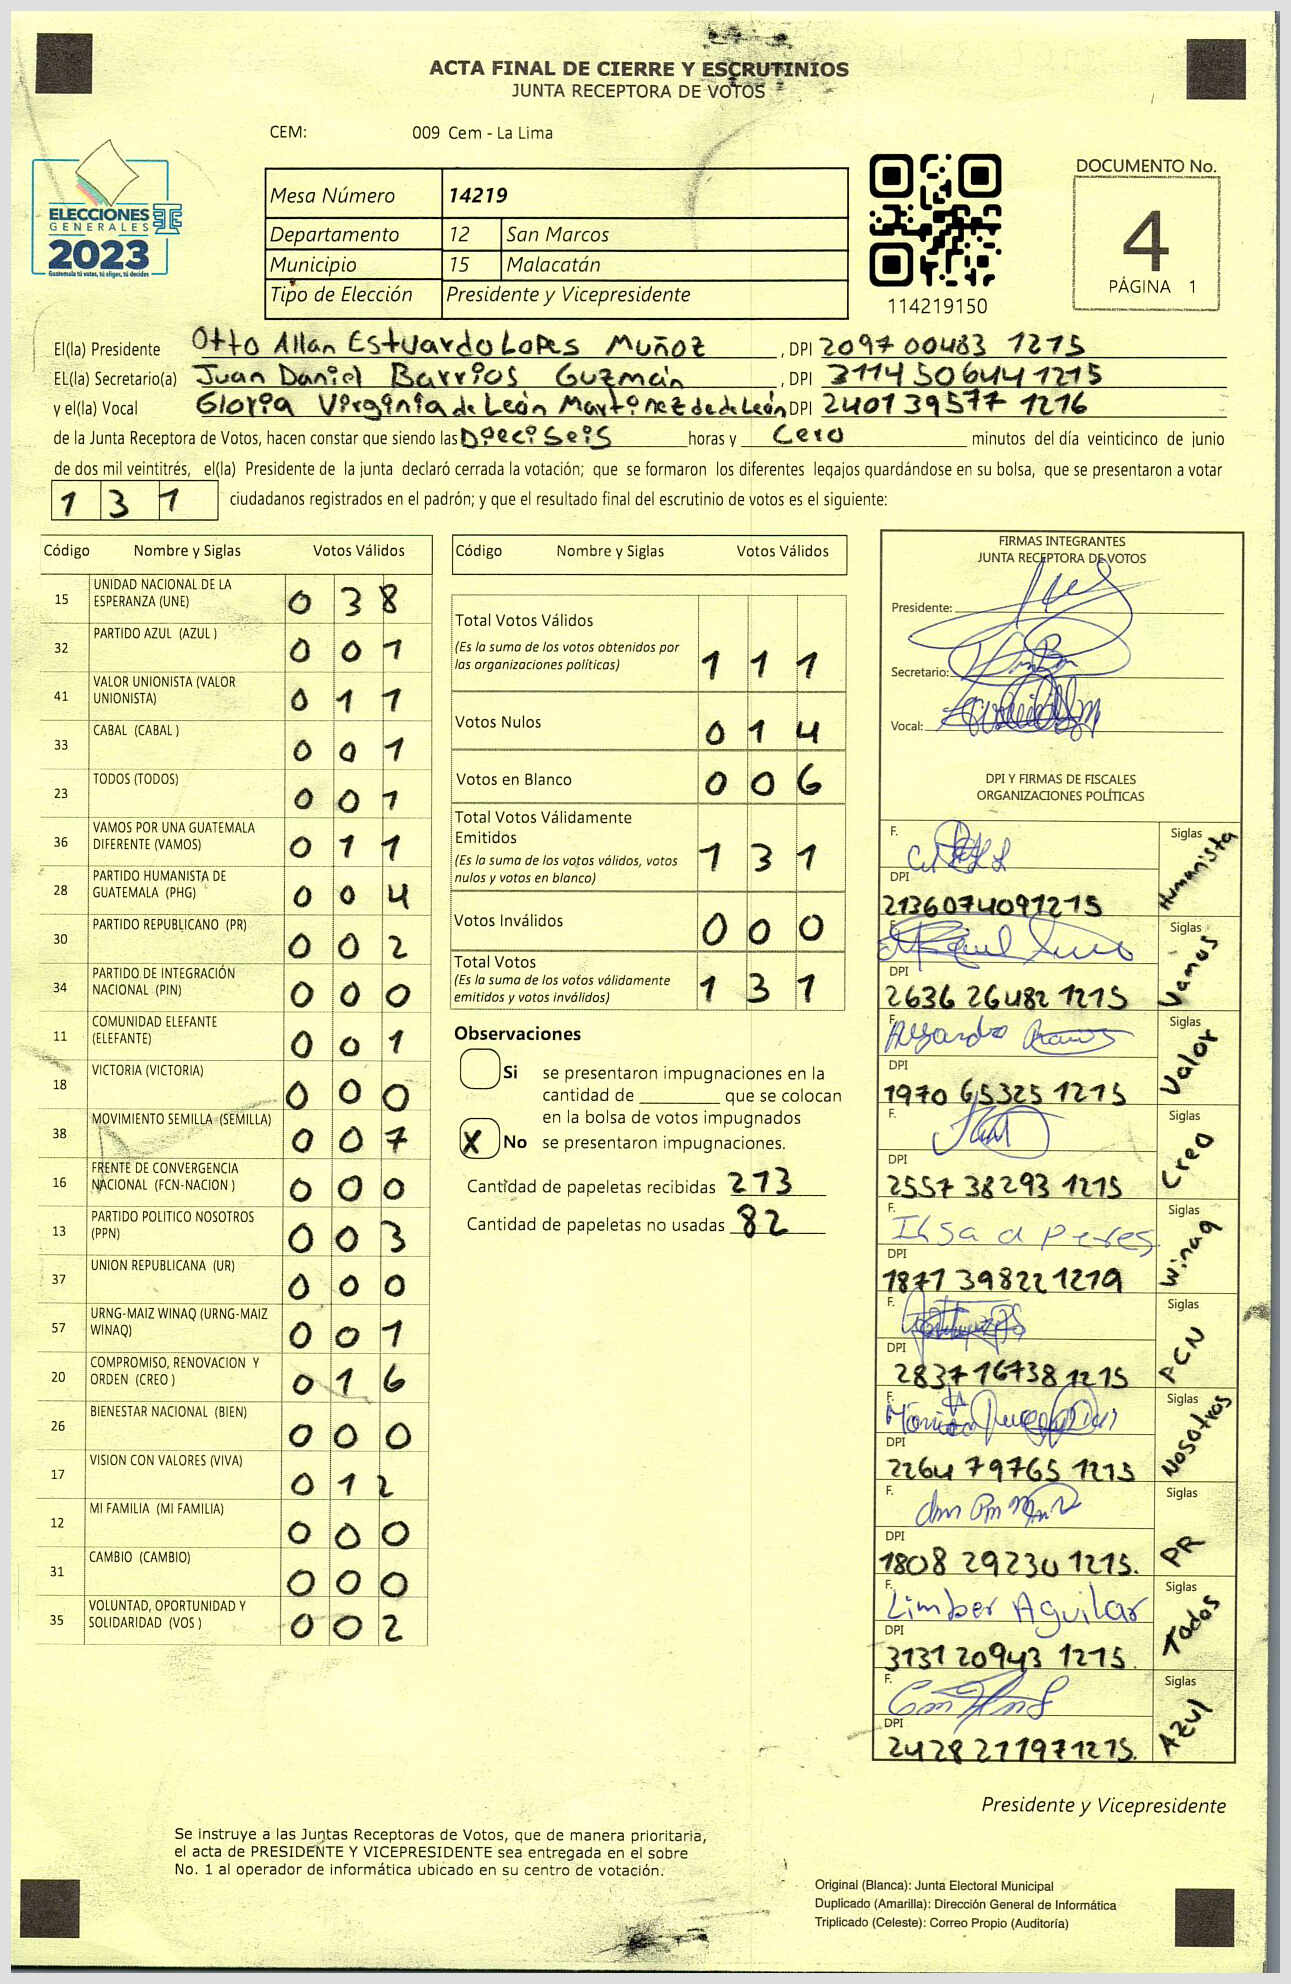 ACTA FINAL DE CIERRE Y ESCRUTINIOS
JUNTA RECEPTORA DE VOTOS
CEM: 009 Cem - La Lima
ELECCIONES
GENERALES
2023
Guatemala tú votas, tú eliges, tú decides
Mesa Número 14219
Departamento 12 San Marcos
Municipio 15 Malacatán
Tipo de Elección Presidente y Vicepresidente
114219150
DOCUMENTO No.
4
PÁGINA 1
El(la) Presidente Otto Allan Estuardo Lopes Muñoz, DPI 2097 00483 1215
EL(la) Secretario(a) Juan Daniel Barrios Guzmán, DPI 3114 50644 1215
y el(la) Vocal Gloria Virginia de León Martinez de de León DPI 2401 39577 1216
de la Junta Receptora de Votos, hacen constar que siendo las Dieciseis horas y Cero minutos del día veinticinco de junio
de dos mil veintitrés, el(la) Presidente de la junta declaró cerrada la votación; que se formaron los diferentes legajos guardándose en su bolsa, que se presentaron a votar
131 ciudadanos registrados en el padrón; y que el resultado final del escrutinio de votos es el siguiente:
Código Nombre y Siglas Votos Válidos
15 UNIDAD NACIONAL DE LA ESPERANZA (UNE) 038
32 PARTIDO AZUL (AZUL ) 001
41 VALOR UNIONISTA (VALOR UNIONISTA) 011
33 CABAL (CABAL ) 001
23 TODOS (TODOS) 001
36 VAMOS POR UNA GUATEMALA DIFERENTE (VAMOS) 011
28 PARTIDO HUMANISTA DE GUATEMALA (PHG) 004
30 PARTIDO REPUBLICANO (PR) 002
34 PARTIDO DE INTEGRACIÓN NACIONAL (PIN) 000
11 COMUNIDAD ELEFANTE (ELEFANTE) 001
18 VICTORIA (VICTORIA) 000
38 MOVIMIENTO SEMILLA (SEMILLA) 007
16 FRENTE DE CONVERGENCIA NACIONAL (FCN-NACION ) 000
13 PARTIDO POLITICO NOSOTROS (PPN) 003
37 UNION REPUBLICANA (UR) 000
57 URNG-MAIZ WINAQ (URNG-MAIZ WINAQ) 001
20 COMPROMISO, RENOVACION Y ORDEN (CREO ) 016
26 BIENESTAR NACIONAL (BIEN) 000
17 VISION CON VALORES (VIVA) 012
12 MI FAMILIA (MI FAMILIA) 000
31 CAMBIO (CAMBIO) 000
35 VOLUNTAD, OPORTUNIDAD Y SOLIDARIDAD (VOS ) 002
Código Nombre y Siglas Votos Válidos
Total Votos Válidos
(Es la suma de los votos obtenidos por
las organizaciones políticas) 111
Votos Nulos 014
Votos en Blanco 006
Total Votos Válidamente
Emitidos
(Es la suma de los votos válidos, votos
nulos y votos en blanco) 131
Votos Inválidos 000
Total Votos
(Es la suma de los votos válidamente
emitidos y votos inválidos) 131
Observaciones
Si se presentaron impugnaciones en la
cantidad de ________ que se colocan
en la bolsa de votos impugnados
X No se presentaron impugnaciones.
Cantidad de papeletas recibidas 213
Cantidad de papeletas no usadas 82
FIRMAS INTEGRANTES
JUNTA RECEPTORA DE VOTOS
Presidente:
Secretario:
Vocal:
DPI Y FIRMAS DE FISCALES
ORGANIZACIONES POLÍTICAS
F. Siglas Humanista
DPI
2136074091215
F. Siglas Vamos
DPI
2636 26482 1215
F. Siglas Valor
DPI
1970 65325 1215
F. Siglas Creo
DPI
2557 38293 1215
F. Siglas Winaq
DPI
1871 39822 1219
F. Siglas PCN
DPI
2837 16738 1215
F. Siglas Nosotros
DPI
2264 79765 1215
F. Siglas PR
DPI
1808 29230 1215.
F. Limber Aguilar Siglas Todos
DPI
3131 20943 1215.
F. Siglas Azul
DPI
2428 27197 1215.
Presidente y Vicepresidente
Se instruye a las Juntas Receptoras de Votos, que de manera prioritaria,
el acta de PRESIDENTE Y VICEPRESIDENTE sea entregada en el sobre
No. 1 al operador de informática ubicado en su centro de votación.
Original (Blanca): Junta Electoral Municipal
Duplicado (Amarilla): Dirección General de Informática
Triplicado (Celeste): Correo Propio (Auditoría)